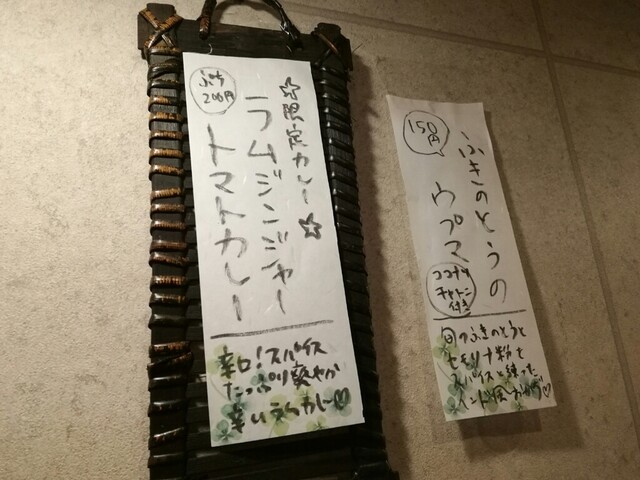 ☆限定カレー☆
ラムジンジャー
トマトカレー
ぷち
200円
辛口!スパイス
たっぷり爽やか
辛いえらカレー♡
ふきのとうの
ウプマ
150円
ココナツ
チャトニ
付き
旬のふきのとうと
セモリナ粉を
スパイスと練った
インド風おかず♡